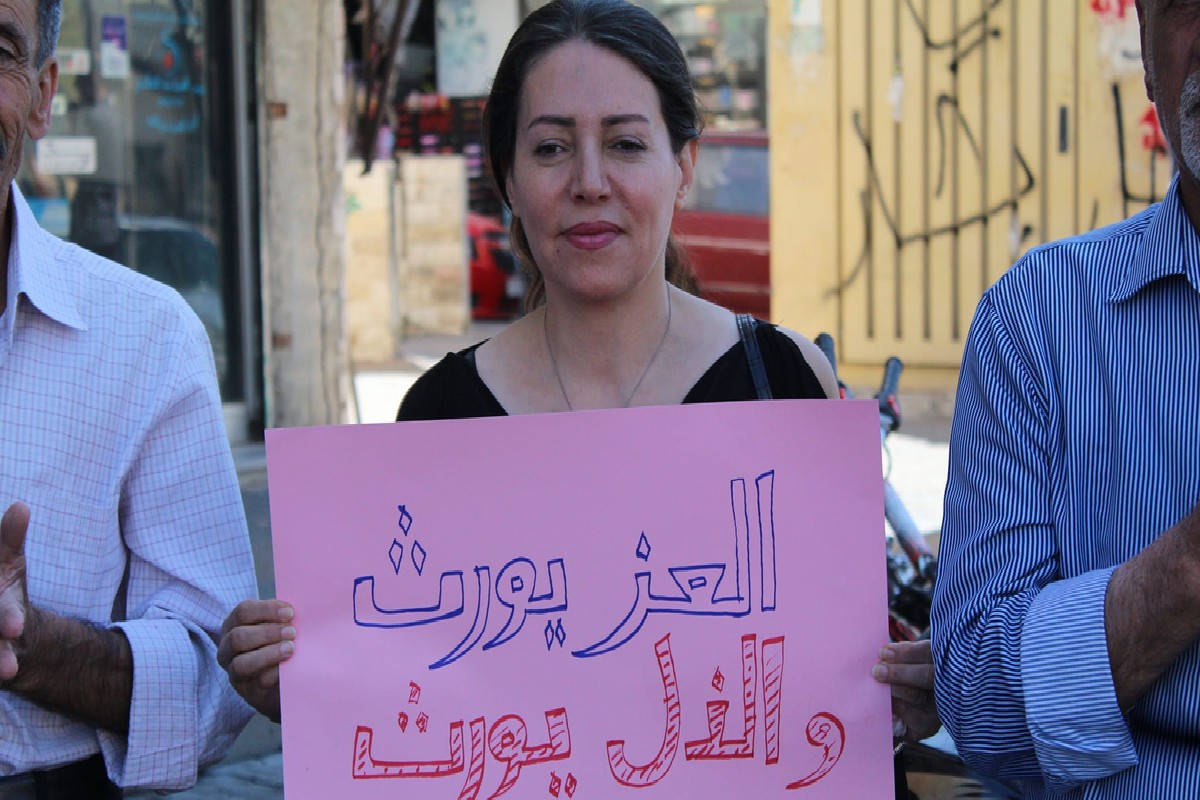 العز يورث
والذل يورث